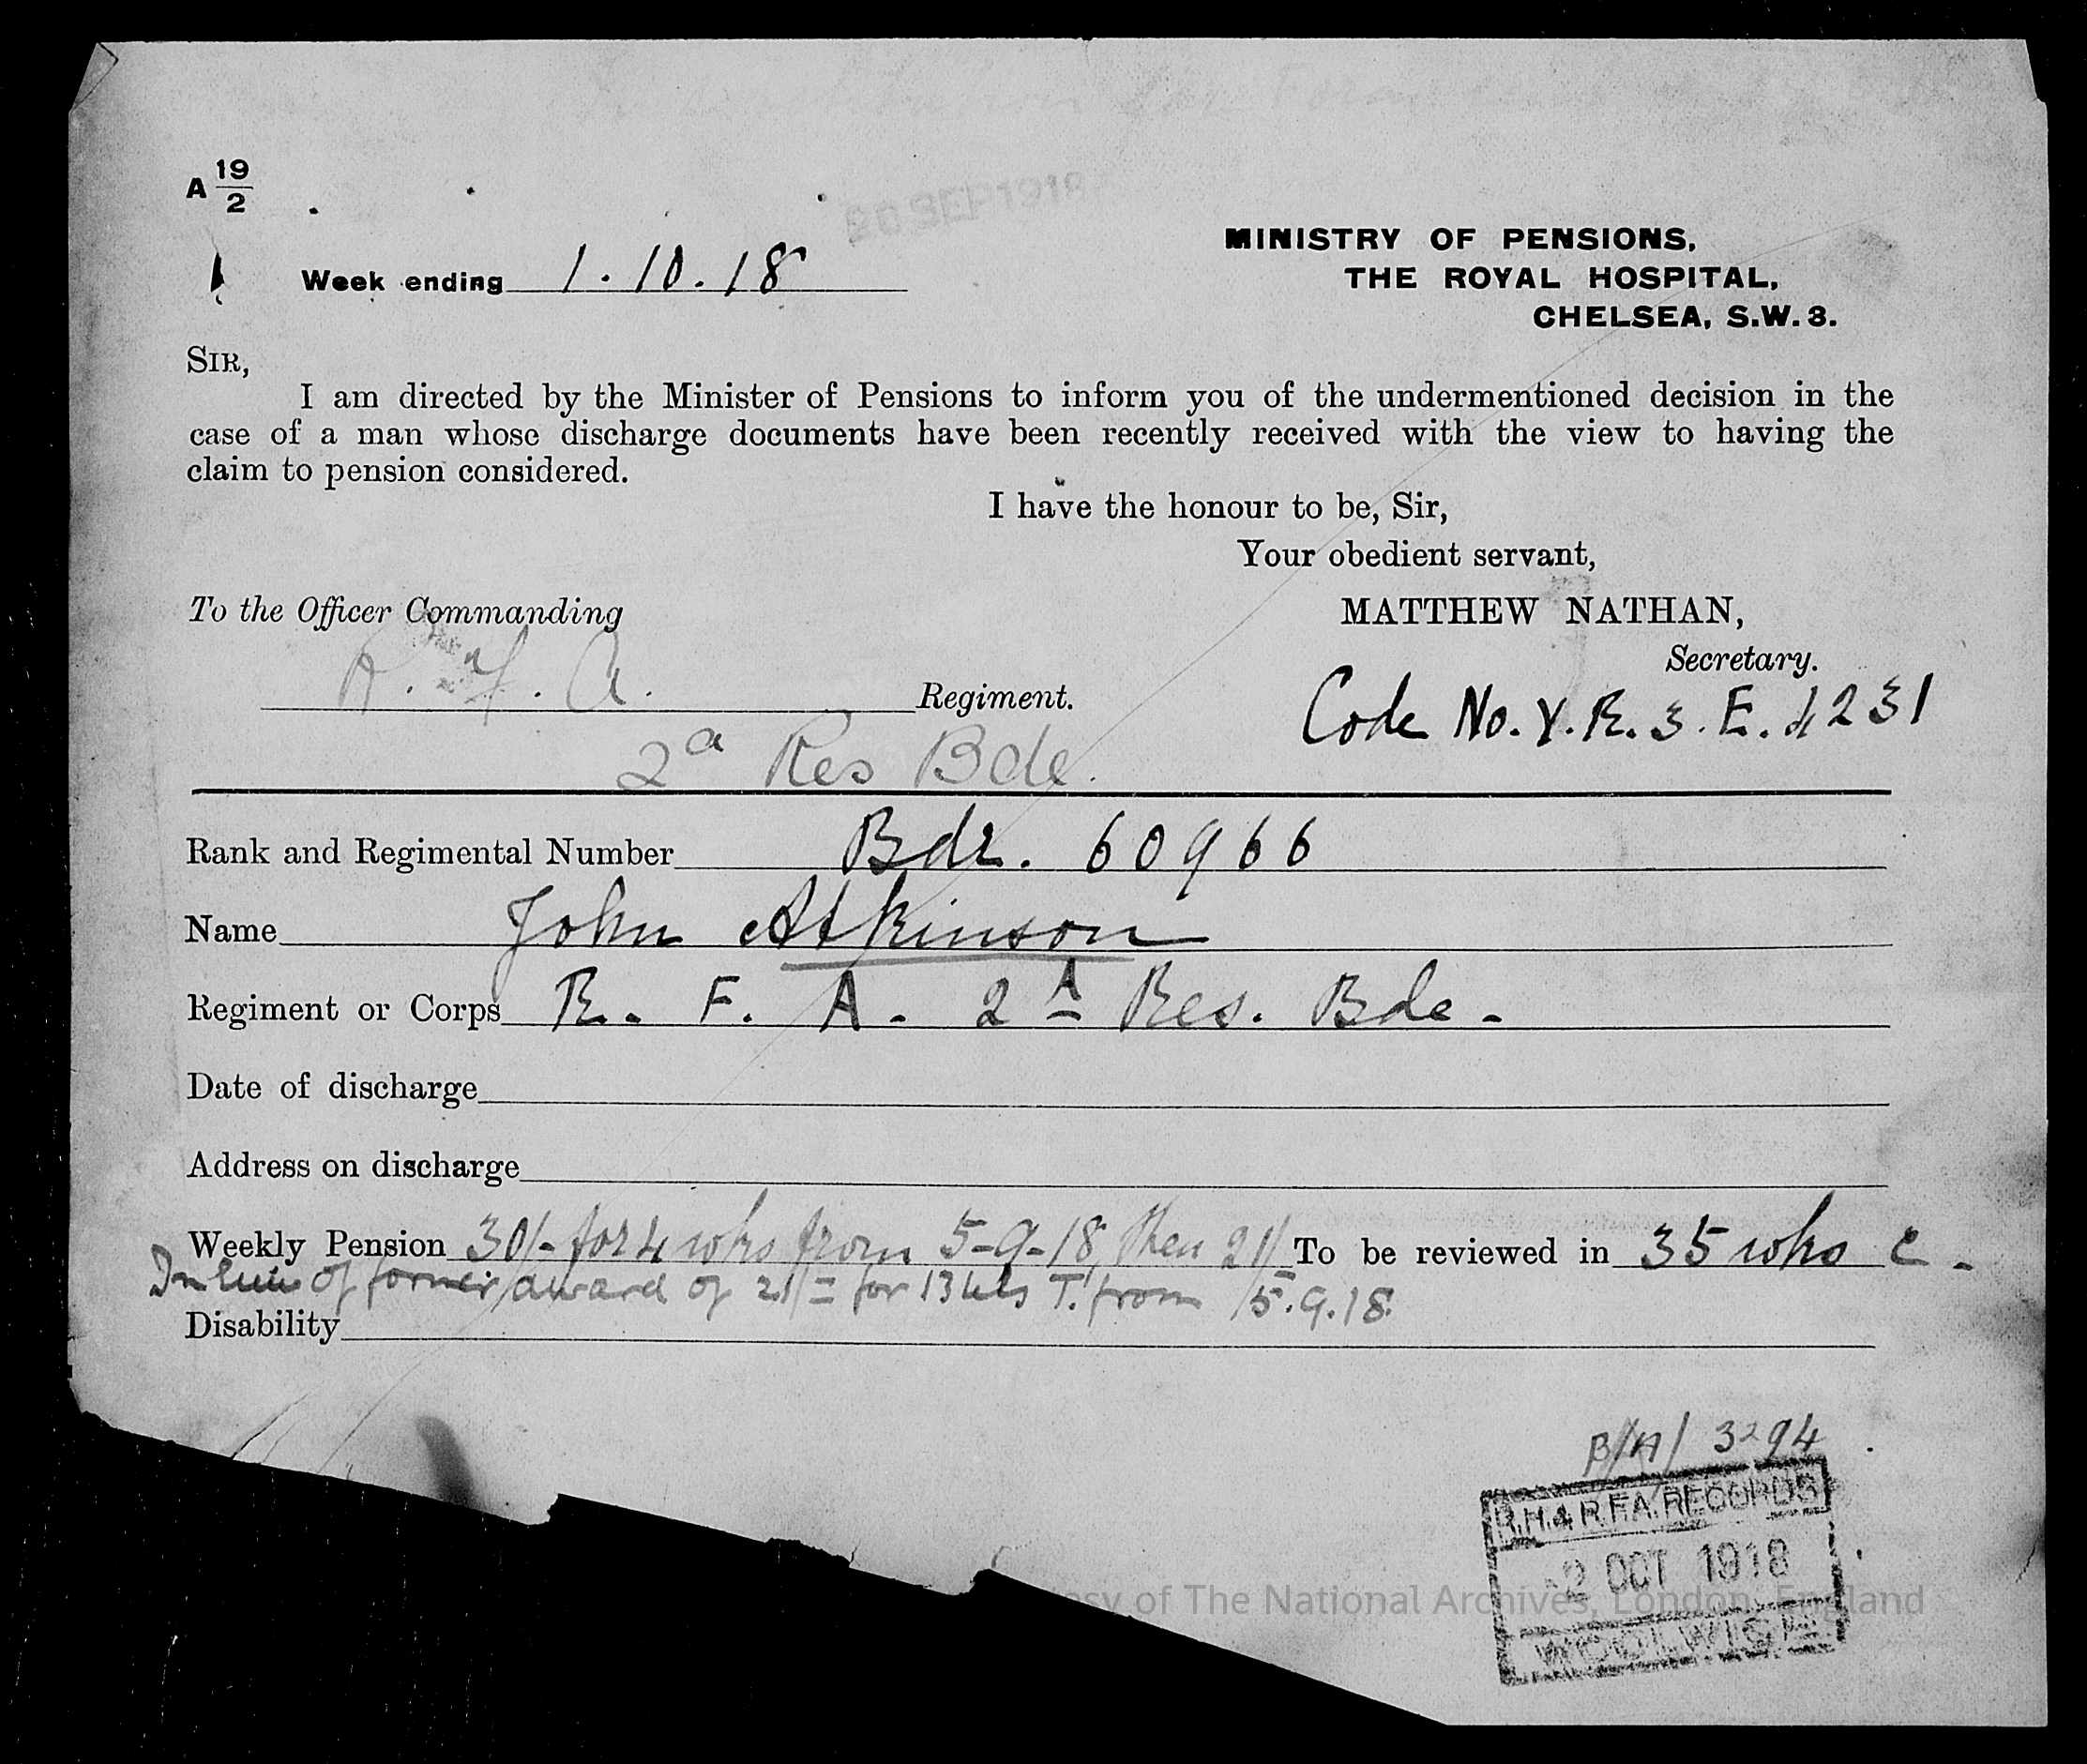 A 19/2
20 SEP 1918
Week ending 1.10.18
MINISTRY OF PENSIONS,
THE ROYAL HOSPITAL,
CHELSEA, S.W.3.
SIR,
I am directed by the Minister of Pensions to inform you of the undermentioned decision in the
case of a man whose discharge documents have been recently received with the view to having the
claim to pension considered.
I have the honour to be, Sir,
Your obedient servant,
To the Officer Commanding
MATTHEW NATHAN,
Secretary.
R. F. A. Regiment.
Code No. Y.R.3.E.4231
2a Res Bde.
Rank and Regimental Number Bdr. 60966
Name John Atkinson
Regiment or Corps R. F. A. 2A Res. Bde.
Date of discharge
Address on discharge
Weekly Pension 30/- for 4 wks from 5-9-18, then 21/ To be reviewed in 35 wks C.
In lieu of former award of 21/= for 13 wks T. from 5.9.18.
Disability
B/A/ 3294
R.H.& R.F.A. RECORDS
2 OCT 1918
WOOLWICH
of The National Archives, London, England